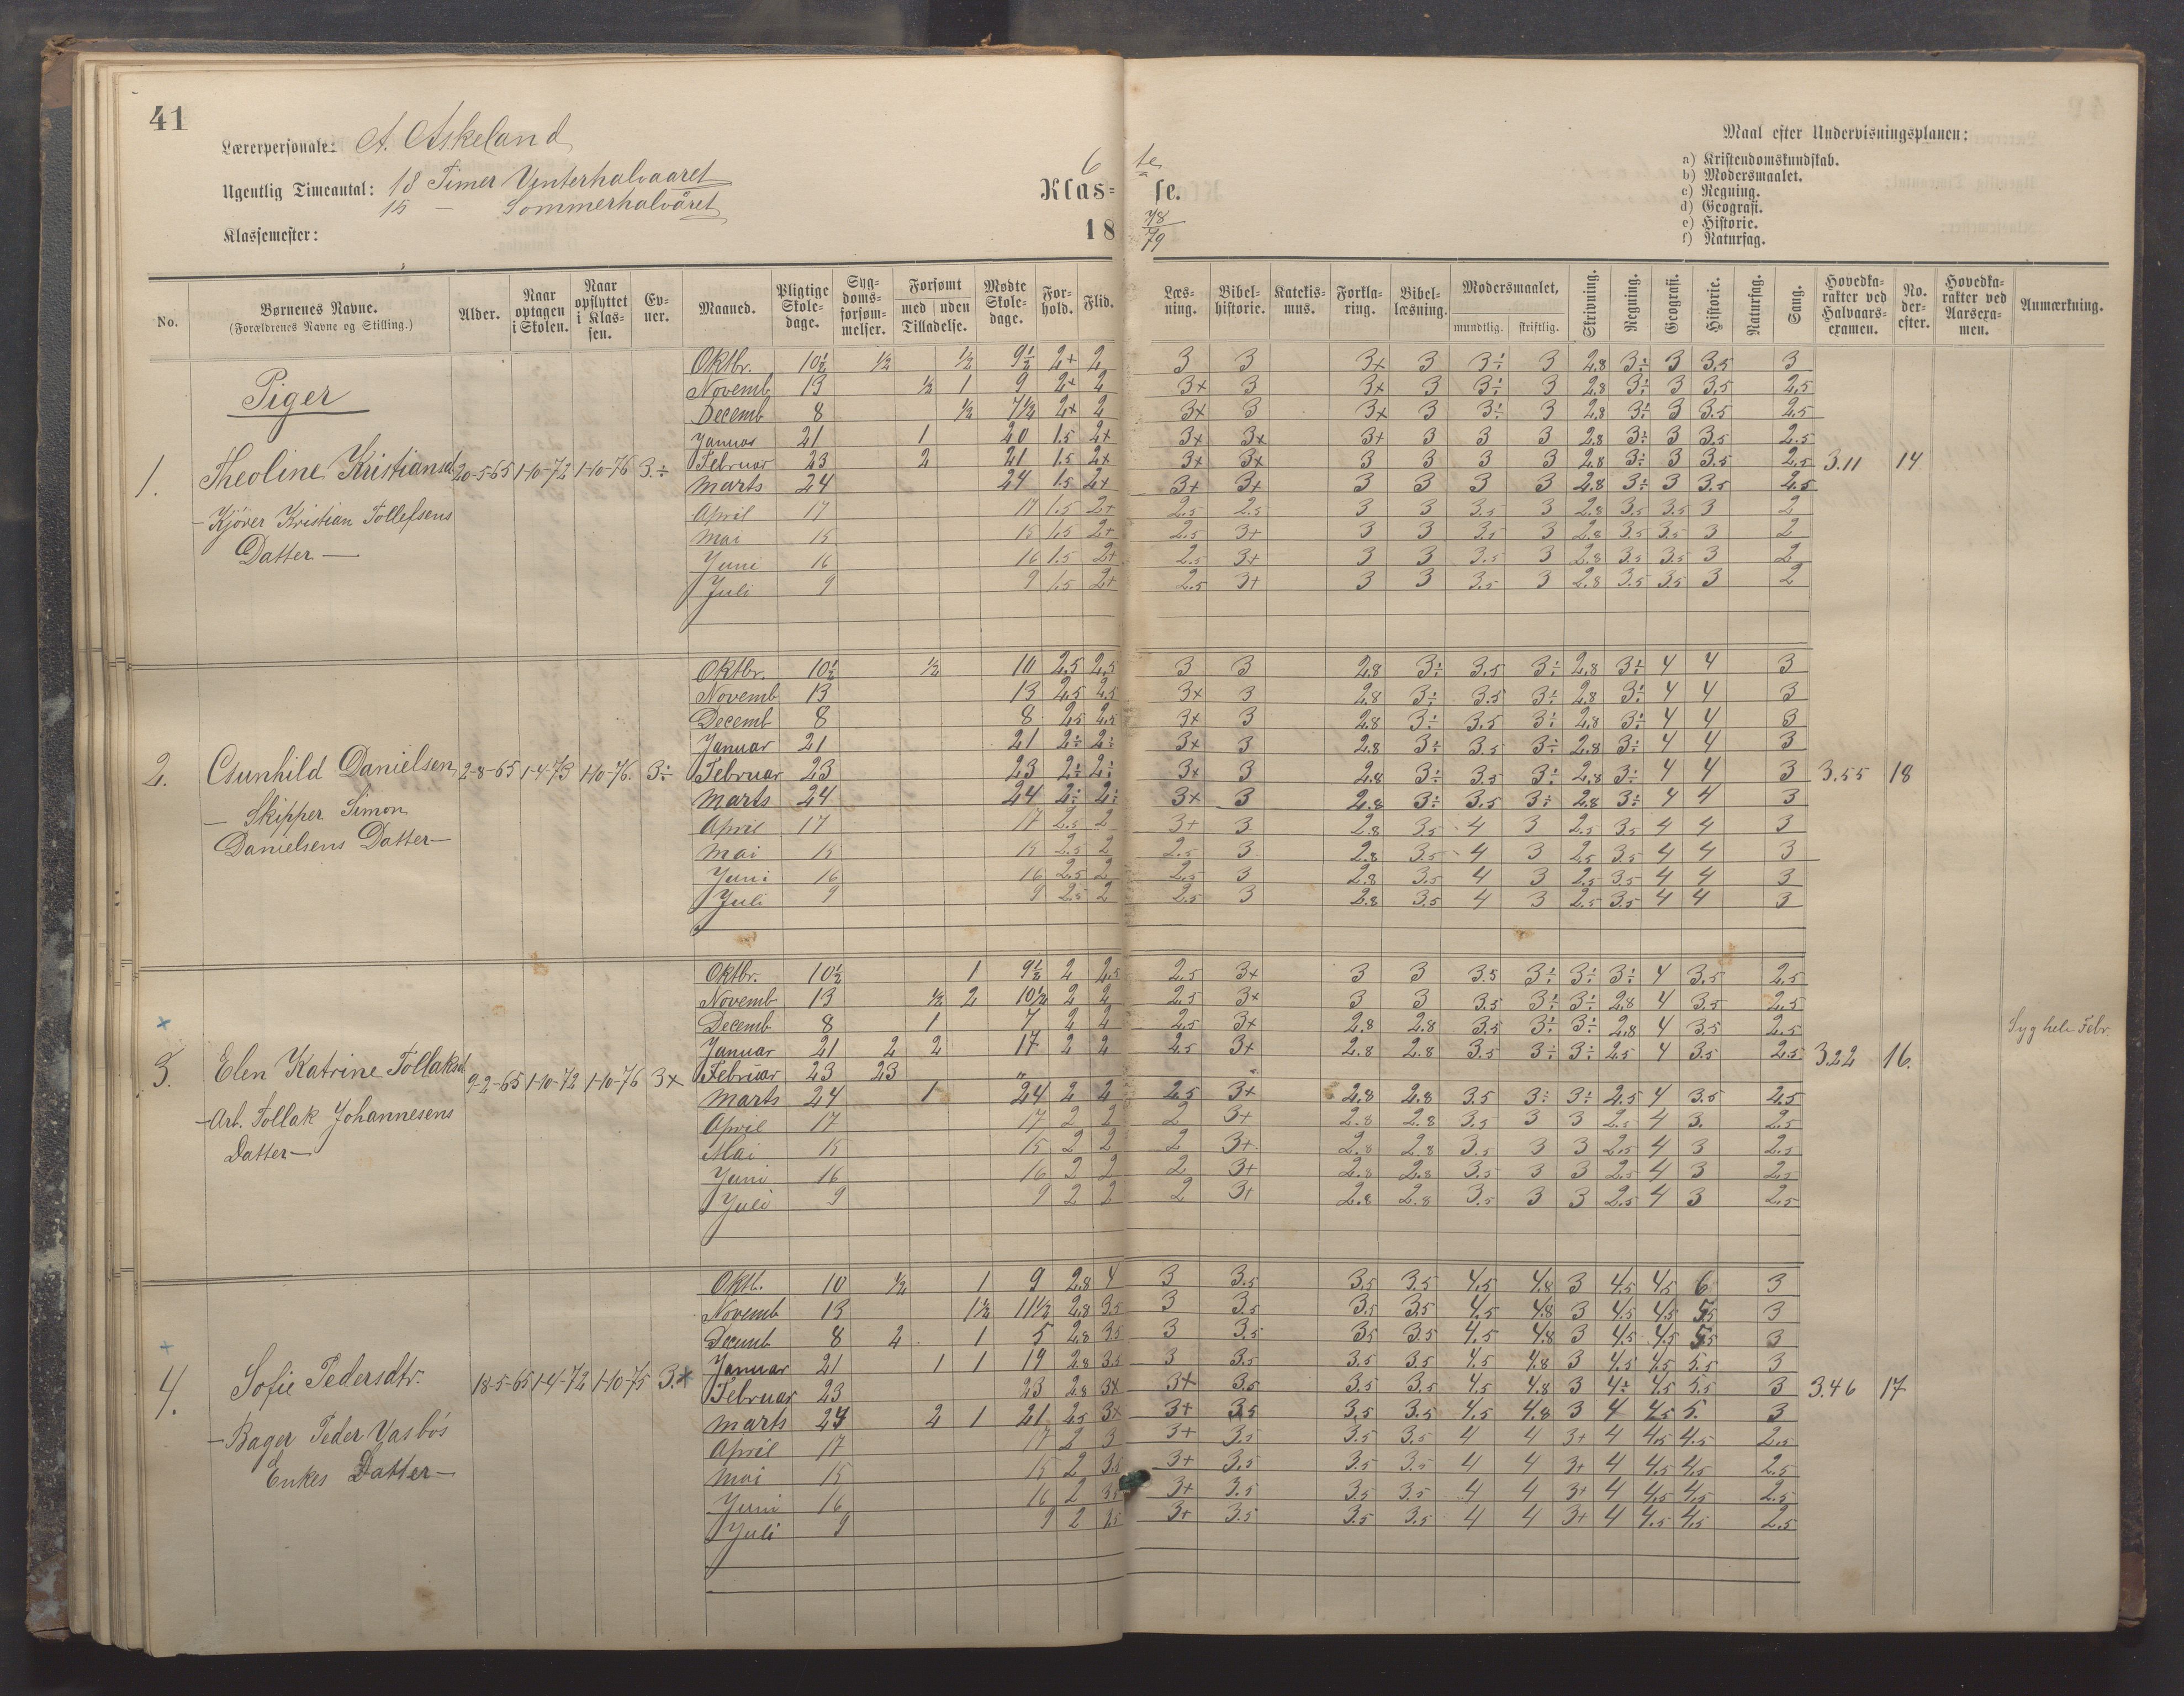 41
Lærerpersonale: A. Askeland
Ugentlig Timeantal: 18 Timer Vinterhalvaaret
15 — Sommerhalvåret
Klassemester:
6te
Klas= se.
18 78/79
Maal efter Undervisningsplanen:
a) Kristendomskundskab.
b) Modersmaalet.
c) Regning.
d) Geografi.
e) Historie.
f) Naturfag.
No. Børnenes Navne. (Forældrenes Navne og Stilling.) Alder. Naar optagen i Skolen. Naar opflyttet i Klassen. Evner. Maaned. Pligtige Skoledage. Sygdomsforsømmelser. Forsømt med uden Tilladelse. Mødte Skoledage. Forhold. Flid. Læsning. Bibelhistorie. Katekismus. Forklaring. Bibellæsning. Modersmaalet, mundtlig. skriftlig. Skrivning. Regning. Geografi. Historie. Naturfag. Sang. Hovedkarakter ved Halvaarsexamen. No. derefter. Hovedkarakter ved Aarsexamen. Anmærkning.
Piger
1. Theoline Kristiansd. 20-5-65 1-10-72 1-10-76 3.÷ 3.11 14
- Kjører Kristian Tollefsens
Datter —
Oktbr. 10½ ½ ½ 9½ 2+ 2 3 3 3x 3 3÷ 3 2,8 3÷ 3 3.5 3
Novemb 13 ½ 1 9 2+ 2 3x 3 3x 3 3÷ 3 2,8 3÷ 3 3,5 2,5
Decemb 8 ½ 7½ 2x 2 3x 3 3x 3 3÷ 3 2,8 3÷ 3 3.5 2,5
Januar 21 1 20 1.5 2x 3x 3x 3+ 3 3 3 2,8 3÷ 3 3.5 2.5
Februar 23 2 21 1.5 2x 3x 3x 3 3 3 3 2,8 3÷ 3 3.5 2,5
Marts 24 24 1.5 2x 3x 3x 3 3 3 3 2,8 3÷ 3 3.5 2,5
April 17 17 1.5 2+ 2.5 2.5 3 3 3.5 3 2.8 3.5 3.5 3 2
Mai 15 15 1.5 2+ 2.5 3+ 3 3 3.5 3 2.8 3.5 3.5 3 2
Juni 16 16 1.5 2+ 2.5 3+ 3 3 3.5 3 2.8 3.5 3.5 3 2
Juli 9 9 1.5 2+ 2.5 3+ 3 3 3.5 3 2.8 3.5 3.5 3 2
2. Gunhild Danielsen 2-8-65 1-4-73 1-10-76. 3÷ 3.55 18
— Skipper Simon
Danielsens Datter —
Oktbr. 10½ ½ 10 2,5 2,5 3 3 2,8 3÷ 3.5 3÷ 2,8 3÷ 4 4 3
Novemb 13 13 2,5 2,5 3x 3 2,8 3÷ 3.5 3÷ 2,8 3÷ 4 4 3
Decemb 8 8 2,5 2,5 3x 3 2,8 3÷ 3.5 3÷ 2,8 3÷ 4 4 3
Januar 21 21 2÷ 2÷ 3x 3 2,8 3÷ 3.5 3÷ 2,8 3÷ 4 4 3
Februar 23 23 2÷ 2÷ 3x 3 2,8 3÷ 3.5 3÷ 2,8 3÷ 4 4 3
Marts 24 24 2÷ 2÷ 3x 3 2,8 3÷ 3.5 3÷ 2,8 3÷ 4 4 3
April 17 17 2.5 2 3+ 3 2.8 3.5 4 3 2.5 3.5 4 4 3
Mai 15 15 2.5 2 2.5 3 2.8 3.5 4 3 2.5 3.5 4 4 3
Juni 16 16 2.5 2 2.5 3 2.8 3.5 4 3 2.5 3.5 4 4 3
Juli 9 9 2.5 2 2.5 3 2.8 3.5 4 3 2.5 3.5 4 4 3
3. Elen Katrine Tollaksd. 9-2-65 1-10-72 1-10-76 3x 3.22 16. Syg hele Febr.
- Arb. Tollak Johannesens
Datter —
Oktbr. 10½ 1 9½ 2 2,5 2,5 3x 3 3 3.5 3÷ 3÷ 3÷ 4 3.5 2,5
Novemb 13 ½ 2 10½ 2 2 2,5 3x 3 3 3.5 3÷ 3÷ 2,8 4 3.5 2,5
Decemb 8 1 7 2 2 2,5 3x 2,8 2,8 3.5 3÷ 3÷ 2,8 4 3.5 2,5
Januar 21 2 2 17 2 2 2,5 3x 2,8 2,8 3.5 3÷ 3÷ 2,5 4 3.5 2,5
Februar 23 23 "
Marts 24 1 24 2 2 2,5 3x 2,8 2,8 3.5 3÷ 3÷ 2,5 4 3.5 2,5
April 17 17 2 2 2 3+ 2.8 2.8 3.5 3 3 2.5 4 3. 2.5
Mai 15 15 2 2 2 3+ 2.8 2.8 3.5 3 3 2.5 4 3 2.5
Juni 16 16 2 2 2 3+ 2.8 2.8 3.5 3 3 2.5 4 3 2.5
Juli 9 9 2 2 2 3+ 2.8 2.8 3.5 3 3 2.5 4 3 2.5
4. Sofie Pedersdtr. 18-5-65 1-4-72 1-10-75 3.x 3.46 17
- Bager Peder Vasbøs
Enkes Datter —
Oktb. 10 ½ 1 9 2,8 4 3 3.5 3.5 3.5 4.5 4.8 3 4.5 4.5 6 3
Novemb 13 1½ 11½ 2,8 3.5 3 3.5 3.5 3.5 4.5 4.8 3 4.5 4.5 5.5 3
Decemb 8 2 1 5 2,8 3.5 3 3.5 3.5 3.5 4.5 4.8 3 4.5 4.5 5.5 3
Januar 21 1 1 19 2,8 3.5 3 3.5 3.5 3.5 4.5 4.8 3 4.5 4.5 5.5 3
Februar 23 23 2,8 3x 3x 3.5 3.5 3.5 4.5 4.8 3 4÷ 4.5 5.5 3
Marts 24 2 1 21 2,5 3x 3+ 3.5 3.5 3.5 4.5 4.8 3 4 4.5 5. 3
April 17 17 2 3 3+ 3.5 3.5 3.5 4 4 3+ 4 4.5 4.5 2.5
Mai 15 15 2 3.5 3+ 3.5 3.5 3.5 4 4 3+ 4 4.5 4.5 2.5
Juni 16 16 2 3+ 3.5 3.5 3.5 4 4 3+ 4 4.5 4.5 2.5
Juli 9 9 2 3+ 3.5 3.5 3.5 4 4 3+ 4 4.5 4.5 2.5